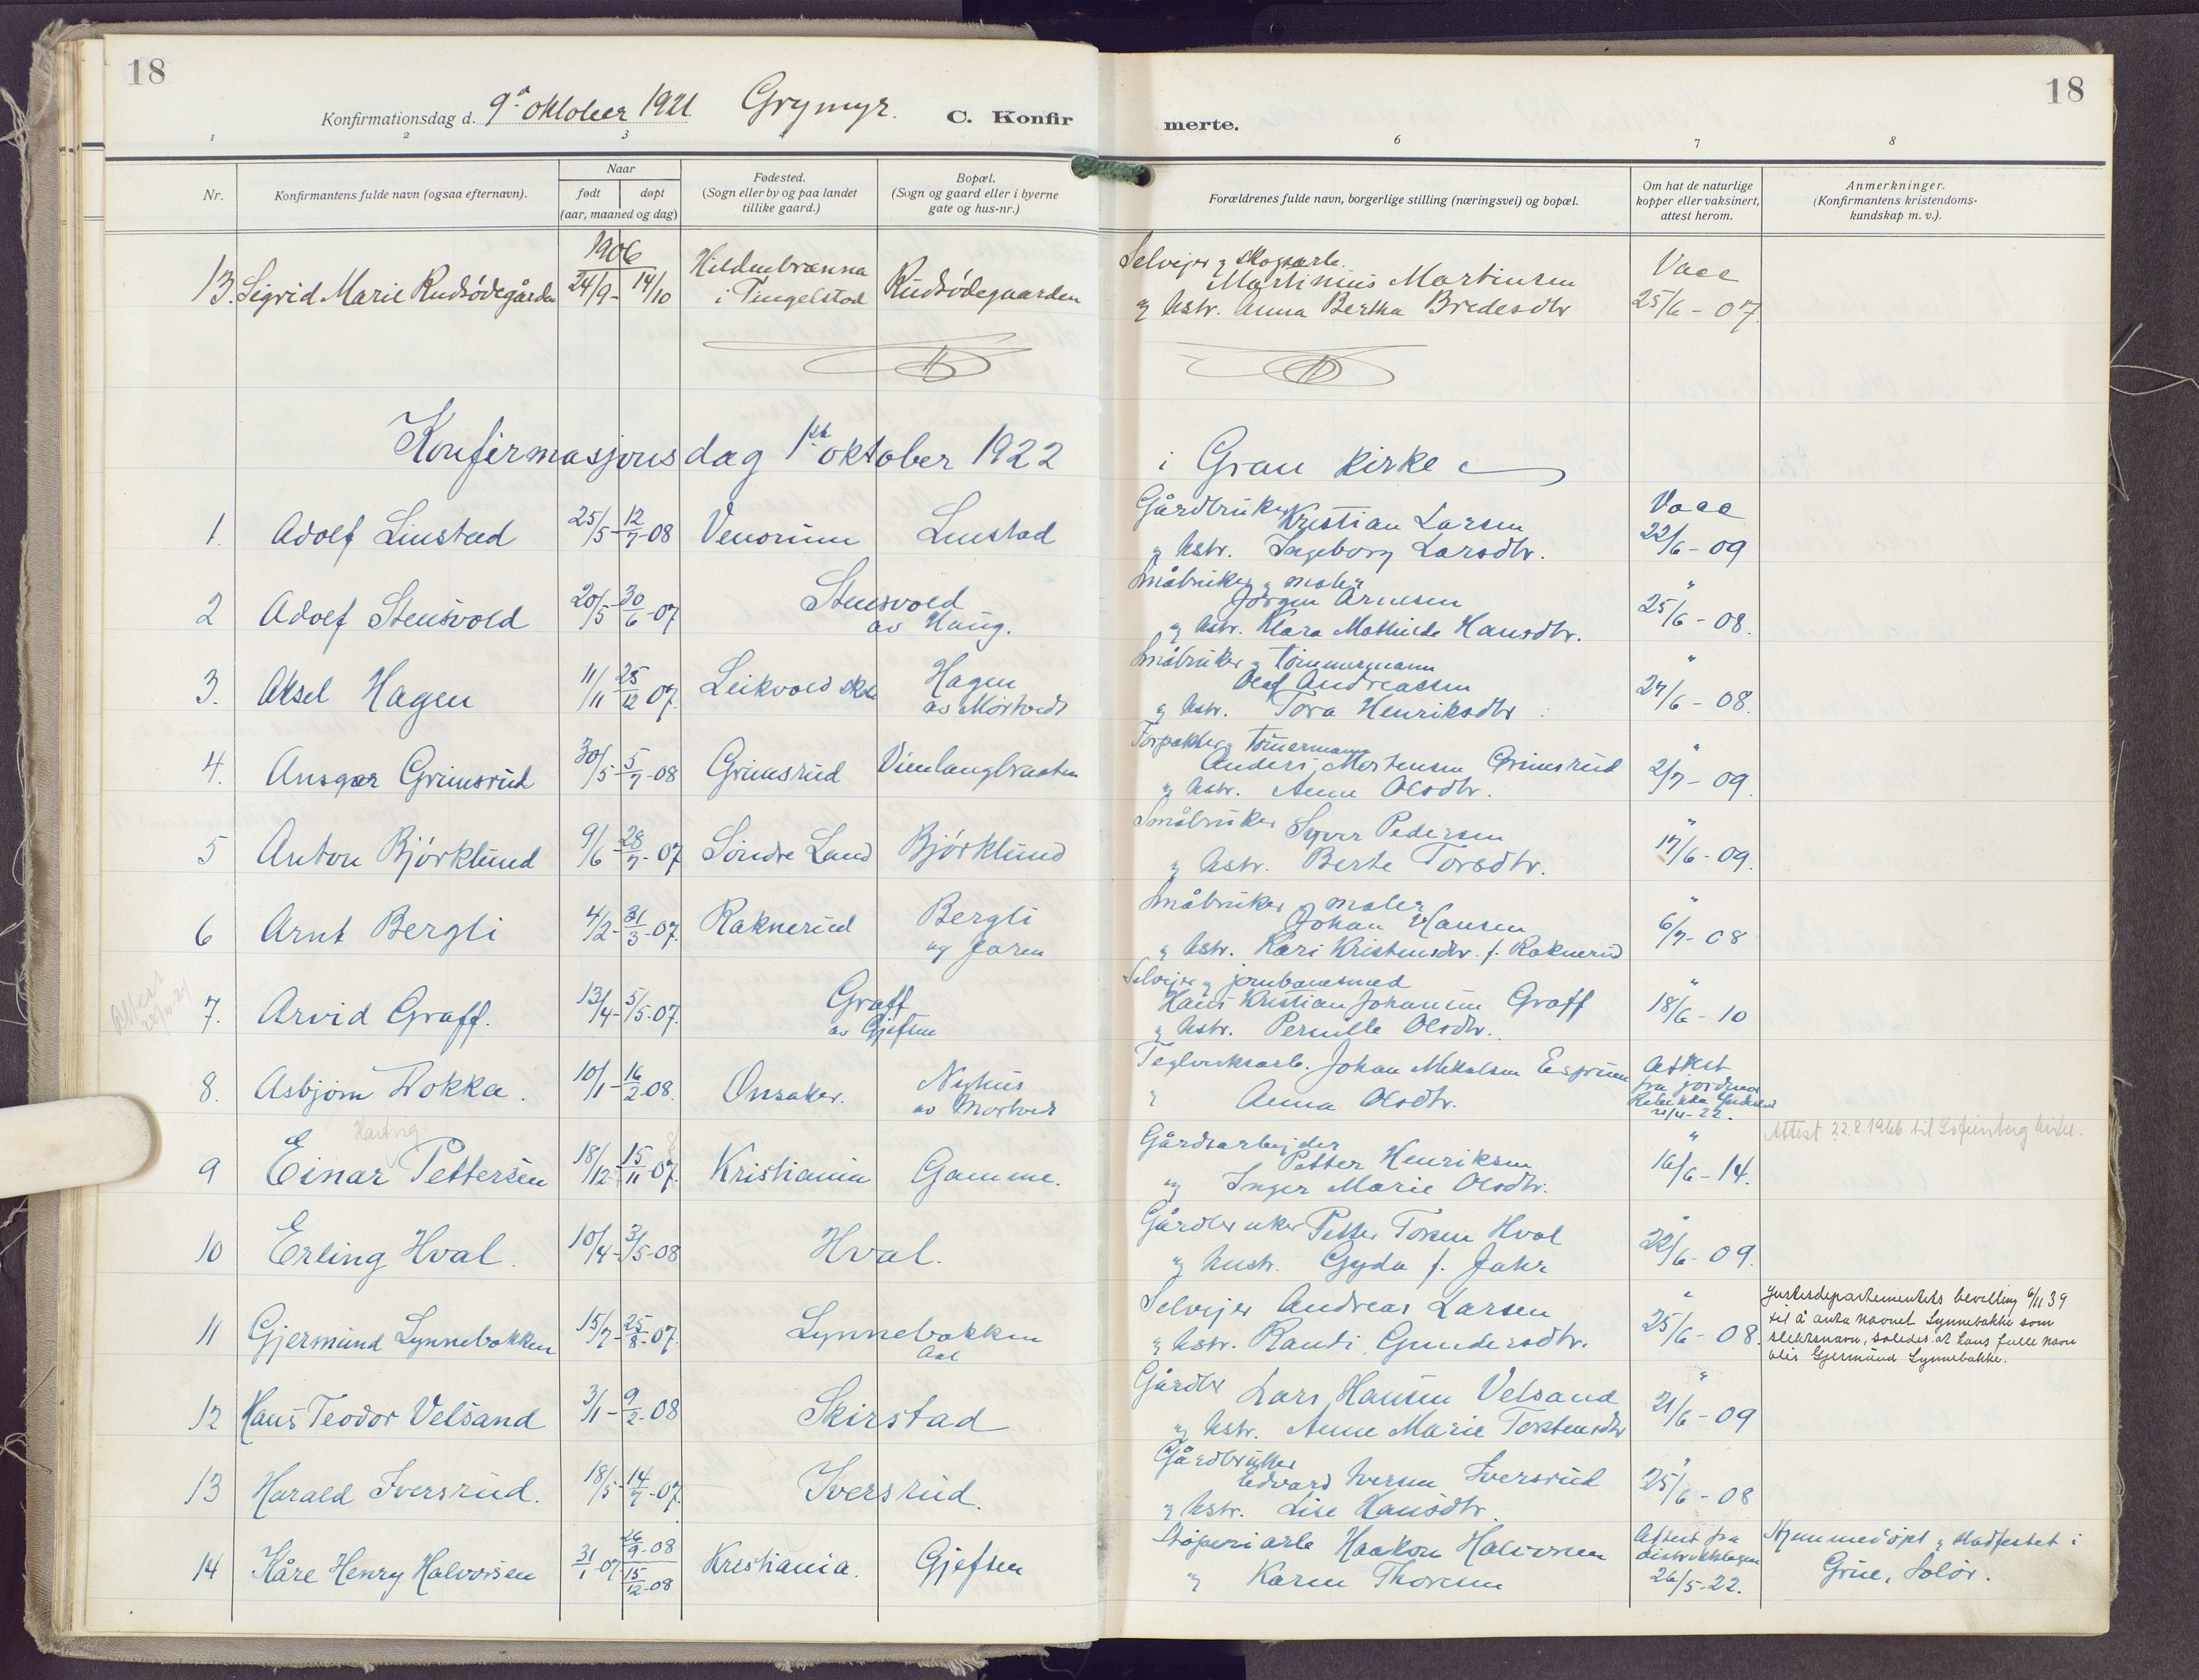 18
18
Konfirmationsdag d. 9de oktober 1921 Grymyr. C. Konfir merte.
1 2 3 4 6 7 8
Nr.
Konfirmantens fulde navn (ogsaa efternavn).
Naar
født døpt
(aar, maaned og dag)
Fødested.
(Sogn eller by og paa landet
tillike gaard.)
Bopæl.
(Sogn og gaard eller i byerne
gate og hus-nr.)
Forældrenes fulde navn, borgerlige stilling (næringsvei) og bopæl.
Om hat de naturlige
kopper eller vaksinert,
attest herom.
Anmerkninger.
(Konfirmantens kristendoms-
kundskap m. v.).
1906
13. Sigrid Marie Rudsødegården 24/9 - 14/10 Hildenbrænna i Tingelstad Rudsødegaarden
Selvejer & skogsarb. Martinius Martinsen
& hstr. Anna Bertha Bredesdtr
Vacc 25/6 - 07.
Konfirmasjonsdag 1ste oktober 1922 i Gran kirke
1. Adolf Linstad 25/5 - 12/7 - 08 Venorum Linstad
Gårdbruker Kristian Larsen
& hstr. Ingeborg Larsdtr.
Vacc 22/6 - 09
2 Adolf Stensvold 20/5 - 30/6 - 07 Stensvold av Haug.
Småbruker & maler Jørgen Arnesen
& hstr. Klara Mathilde Hansdtr.
" 25/6 - 08.
3. Aksel Hagen 11/11 25/12 07. Leikvold Hagen av Mortvedt
Småbruker & tømmermann Olaf Andreassen
& hstr. Tora Henriksdtr
" 27/6 - 08.
4. Ansgar Grimsrud 30/5 - 5/7 - 08 Grimsrud Vienlangbraaten
Forpakter & tømermann Anders Mortensen Grimsrud
& hstr. Anne Olsdtr.
" 2/7 - 09.
5 Anton Bjørklund 9/6 - 28/7 - 07 Søndre Land Bjørklund
Småbruker Syver Pedersen
& hstr. Berte Torsdtr.
" 17/6 - 09.
6 Arnt Bergli 4/2 - 31/3 - 07. Raknerud Bergli av Jaren
Småbruker & maler Johan Hansen
& hstr. Kari Kristensdtr. f. Raknerud
" 6/7 - 08
Attest
7. Arvid Graff. 13/4 - 5/5 - 07. Graff av Gjefsen
Selvejer & jernbanesmed
Hans Kristian Johansen Graff
& hstr. Pernille Olsdtr.
" 18/6 - 10
8. Asbjørn Dokka. 10/1 - 16/2 - 08. Onsaker. Nyhus av Mortved
Teglverksarb. Johan Mikalsen Esprum
" Anna Olsdtr.
Attest fra jordmor 21/4 - 22.
Harång
9 Einar Pettersen 18/12 - 15/11 - 07. Kristiania Gamme.
Gårdsarbejder Petter Henriksen
& Inger Marie Olsdtr.
" 16/6 - 14.
Attest 22.8.1946 til Sofienberg kirke.
10 Erling Hval. 10/4 - 31/5 - 08 Hval.
Gårdbruker Petter Torsen Hval
& hustr. Gyda f. Jahr
" 22/6 - 09.
11 Gjermund Lynnebakken 15/7 - 25/8 - 07. Lynnebakken Aal
Selvejer Andreas Larsen
& hstr. Randi Gundersdtr.
" 25/6 - 08.
Justisdepartementets bevilling 6/11 39
til å anta navnet Lynnebakke som
slektsnavn, således at hans fulle navn
blir Gjermund Lynnebakke.
12 Hans Teodor Velsand 3/1 - 9/2 - 08 Skirstad
Gårdbr Lars Hansen Velsand
& hstr. Anne Marie Torstensdtr
" 21/6 - 09
13 Harald Iversrud. 18/5 - 14/7 - 07. Iversrud.
Gårdbruker Edvard Iversen Iversrud
& hstr. Lise Hansdtr.
" 25/6 - 08
14 Kåre Henry Halvorsen 31/1 - 07 26/9 - 08 15/12 - 08 Kristiania. Gjefsen
Støperiarb Haakon Halvorsen
& Karen Thoresen
Attest fra distriktslægen 26/5 - 22.
Hjemmedøpt & stadfestet i
Grue, Solør.